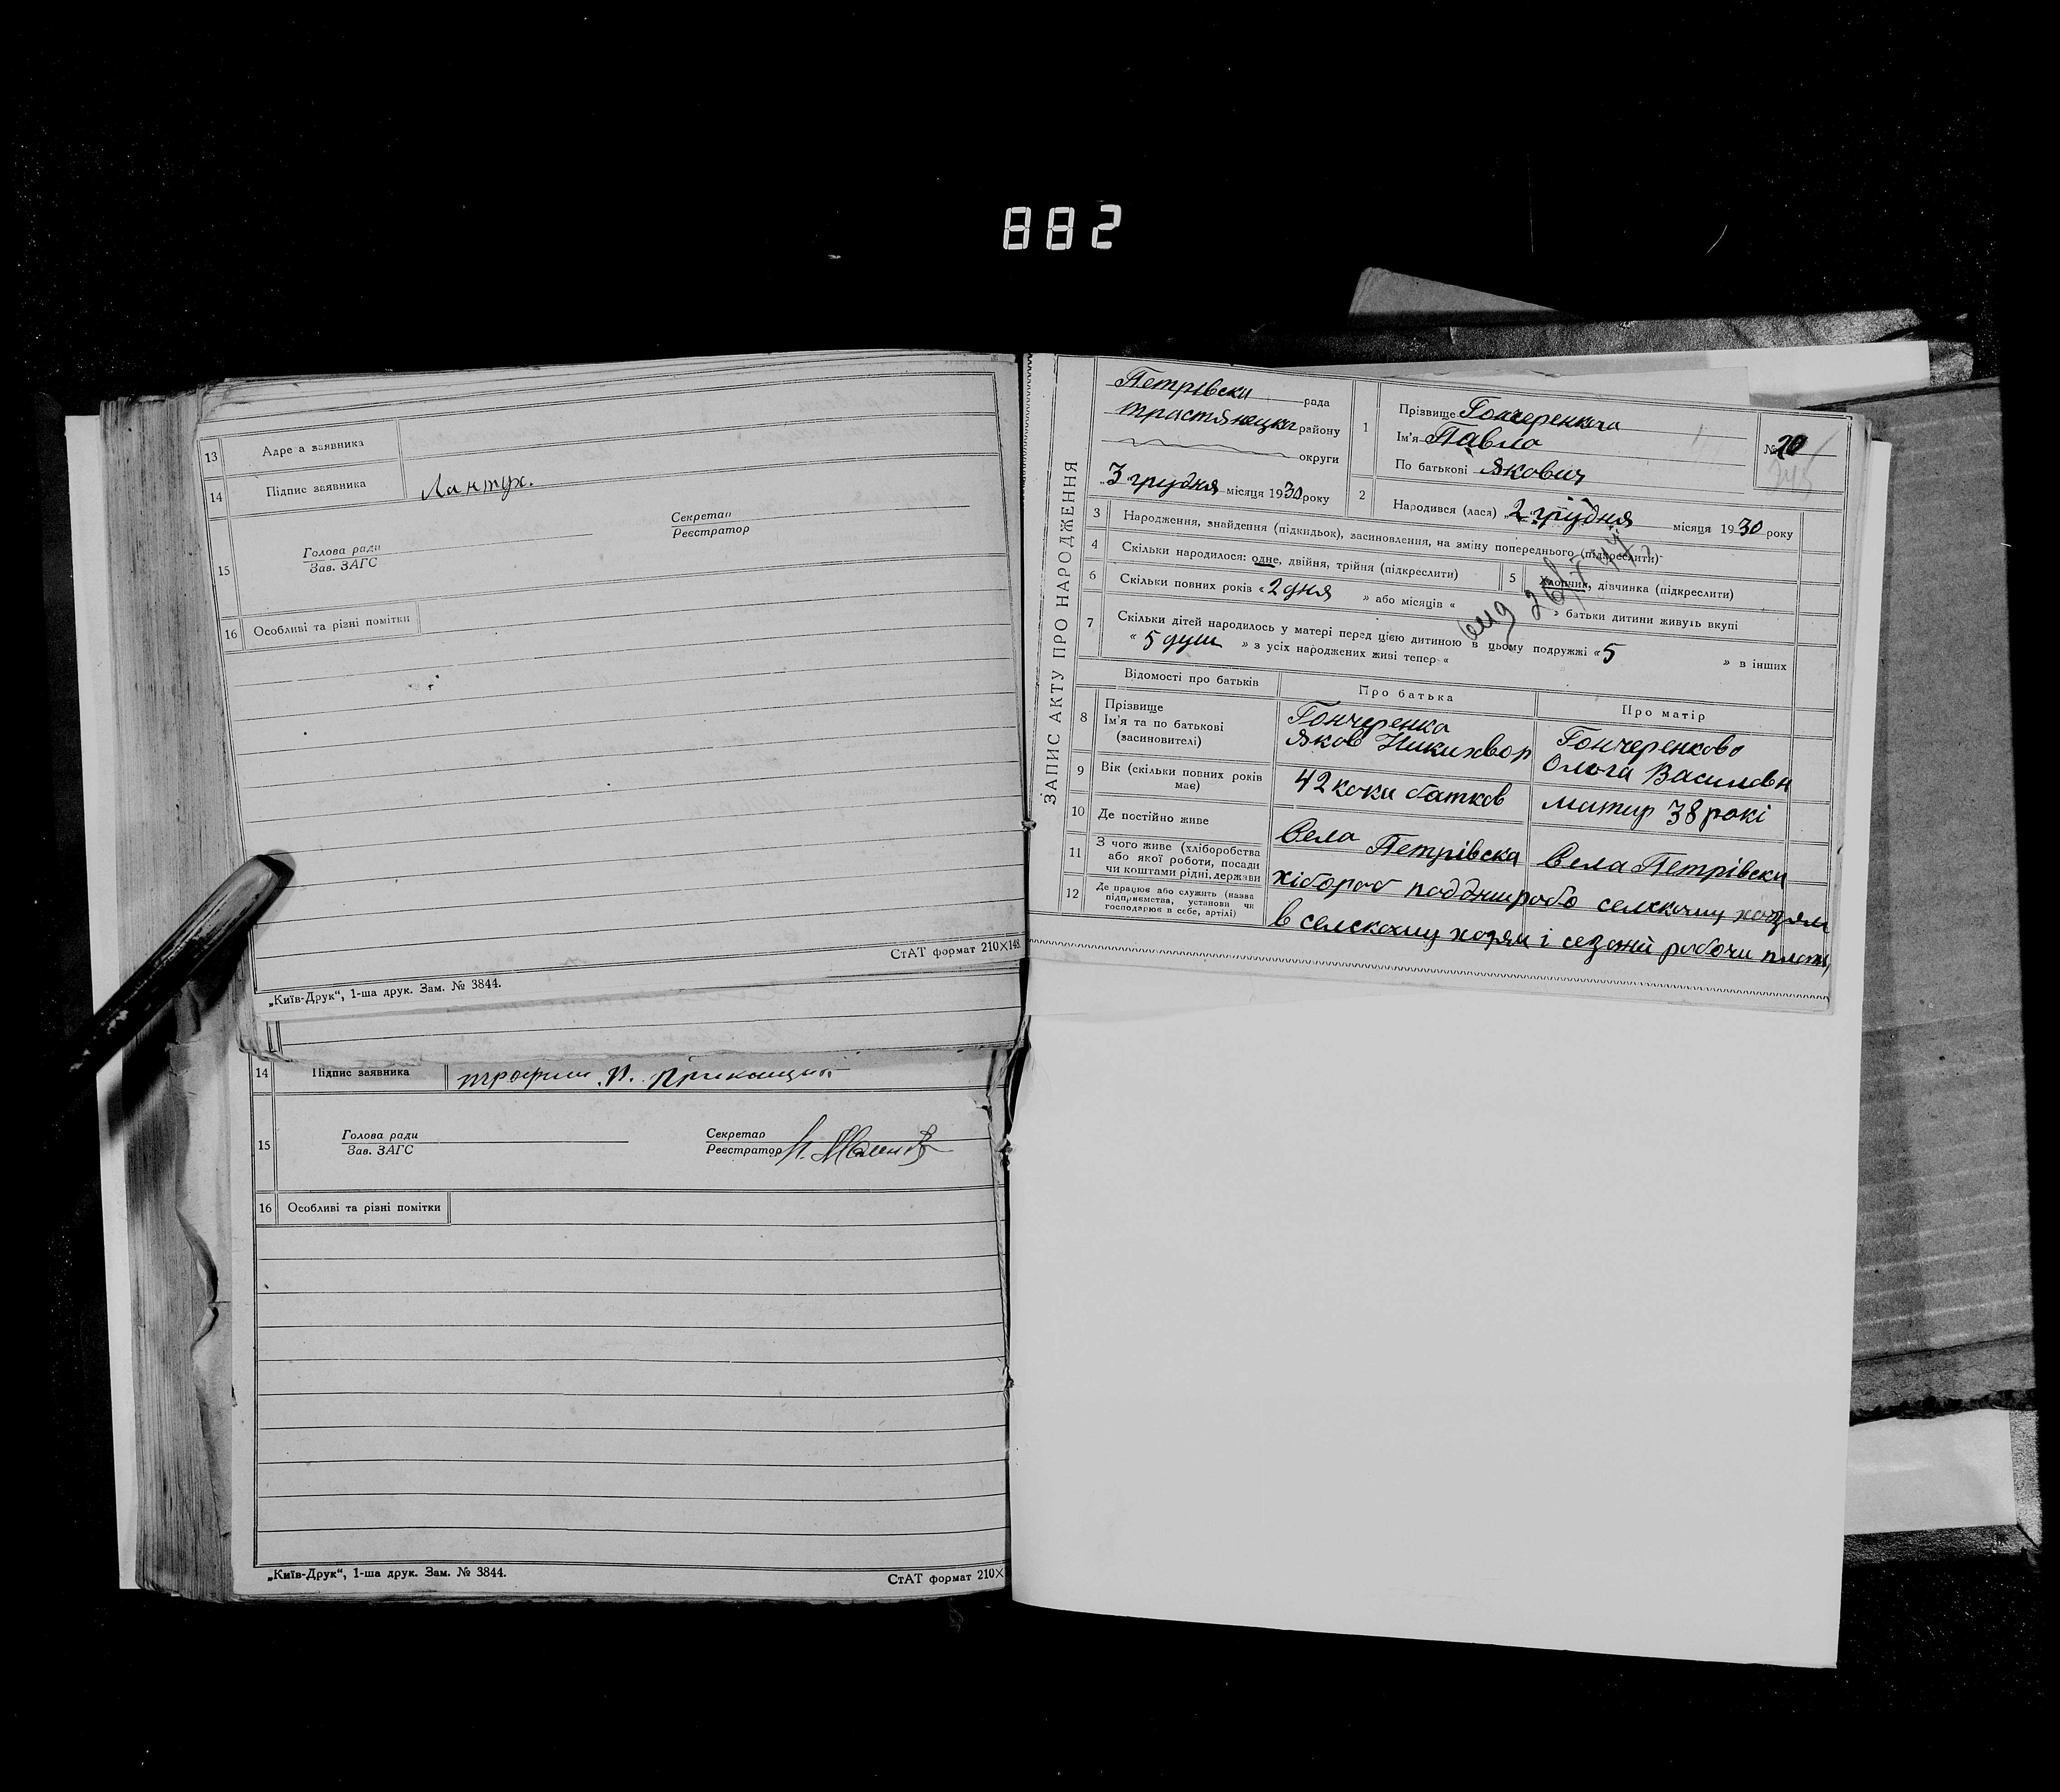 882
13 Адреса заявника
14 Підпис заявника Лантух.
15 Голова ради
Зав. ЗАГС
Секретар
Реєстратор
16 Особливі та різні помітки
СтАТ формат 210×148
„Київ-Друк“, 1-ша друк. Зам. № 3844.
14 Підпис заявника
15 Голова ради
Зав. ЗАГС
Секретар
Реєстратор
16 Особливі та різні помітки
„Київ-Друк“, 1-ша друк. Зам. № 3844.
СтАТ формат 210×
ЗАПИС АКТУ ПРО НАРОДЖЕННЯ
Петрівски рада
району
округи
„3 грудня місяця 1930 року
1 Прізвище Гончеренка
Ім'я Павло
По батькові Якович
№ 20
2 Народився (лася) 2 грудня місяця 1930 року
3 Народження, знайдення (підкидьок), засиновлення, на зміну попереднього (підкреслити)
4 Скільки народилося: одне, двійня, трійня (підкреслити)
5 Хлопчик, дівчинка (підкреслити)
6 Скільки повних років « 2 дня » або місяців « » батьки дитини живуть вкупі
7 Скільки дітей народилось у матері перед цією дитиною в цьому подружжі « 5 » в інших
« 5 душ » з усіх народжених живі тепер «
Відомості про батьків Про батька Про матір
8 Прізвище
Ім'я та по батькові
(засиновителі)
Гончеренка
Яков Никихвор
Гончеренково
Ольга Василовн
9 Вік (скільки повних років має)
42 роки батков
матир 38 рокі
10 Де постійно живе
Села Петрівска
Села Петрівски
11 З чого живе (хліборобства
або якої роботи, посади
чи коштами рідні, держави
12 Де працює або служить (назва
підприємства, установи чи
господарює в себе, артілі)
в селскому хозям і сезоній роботи